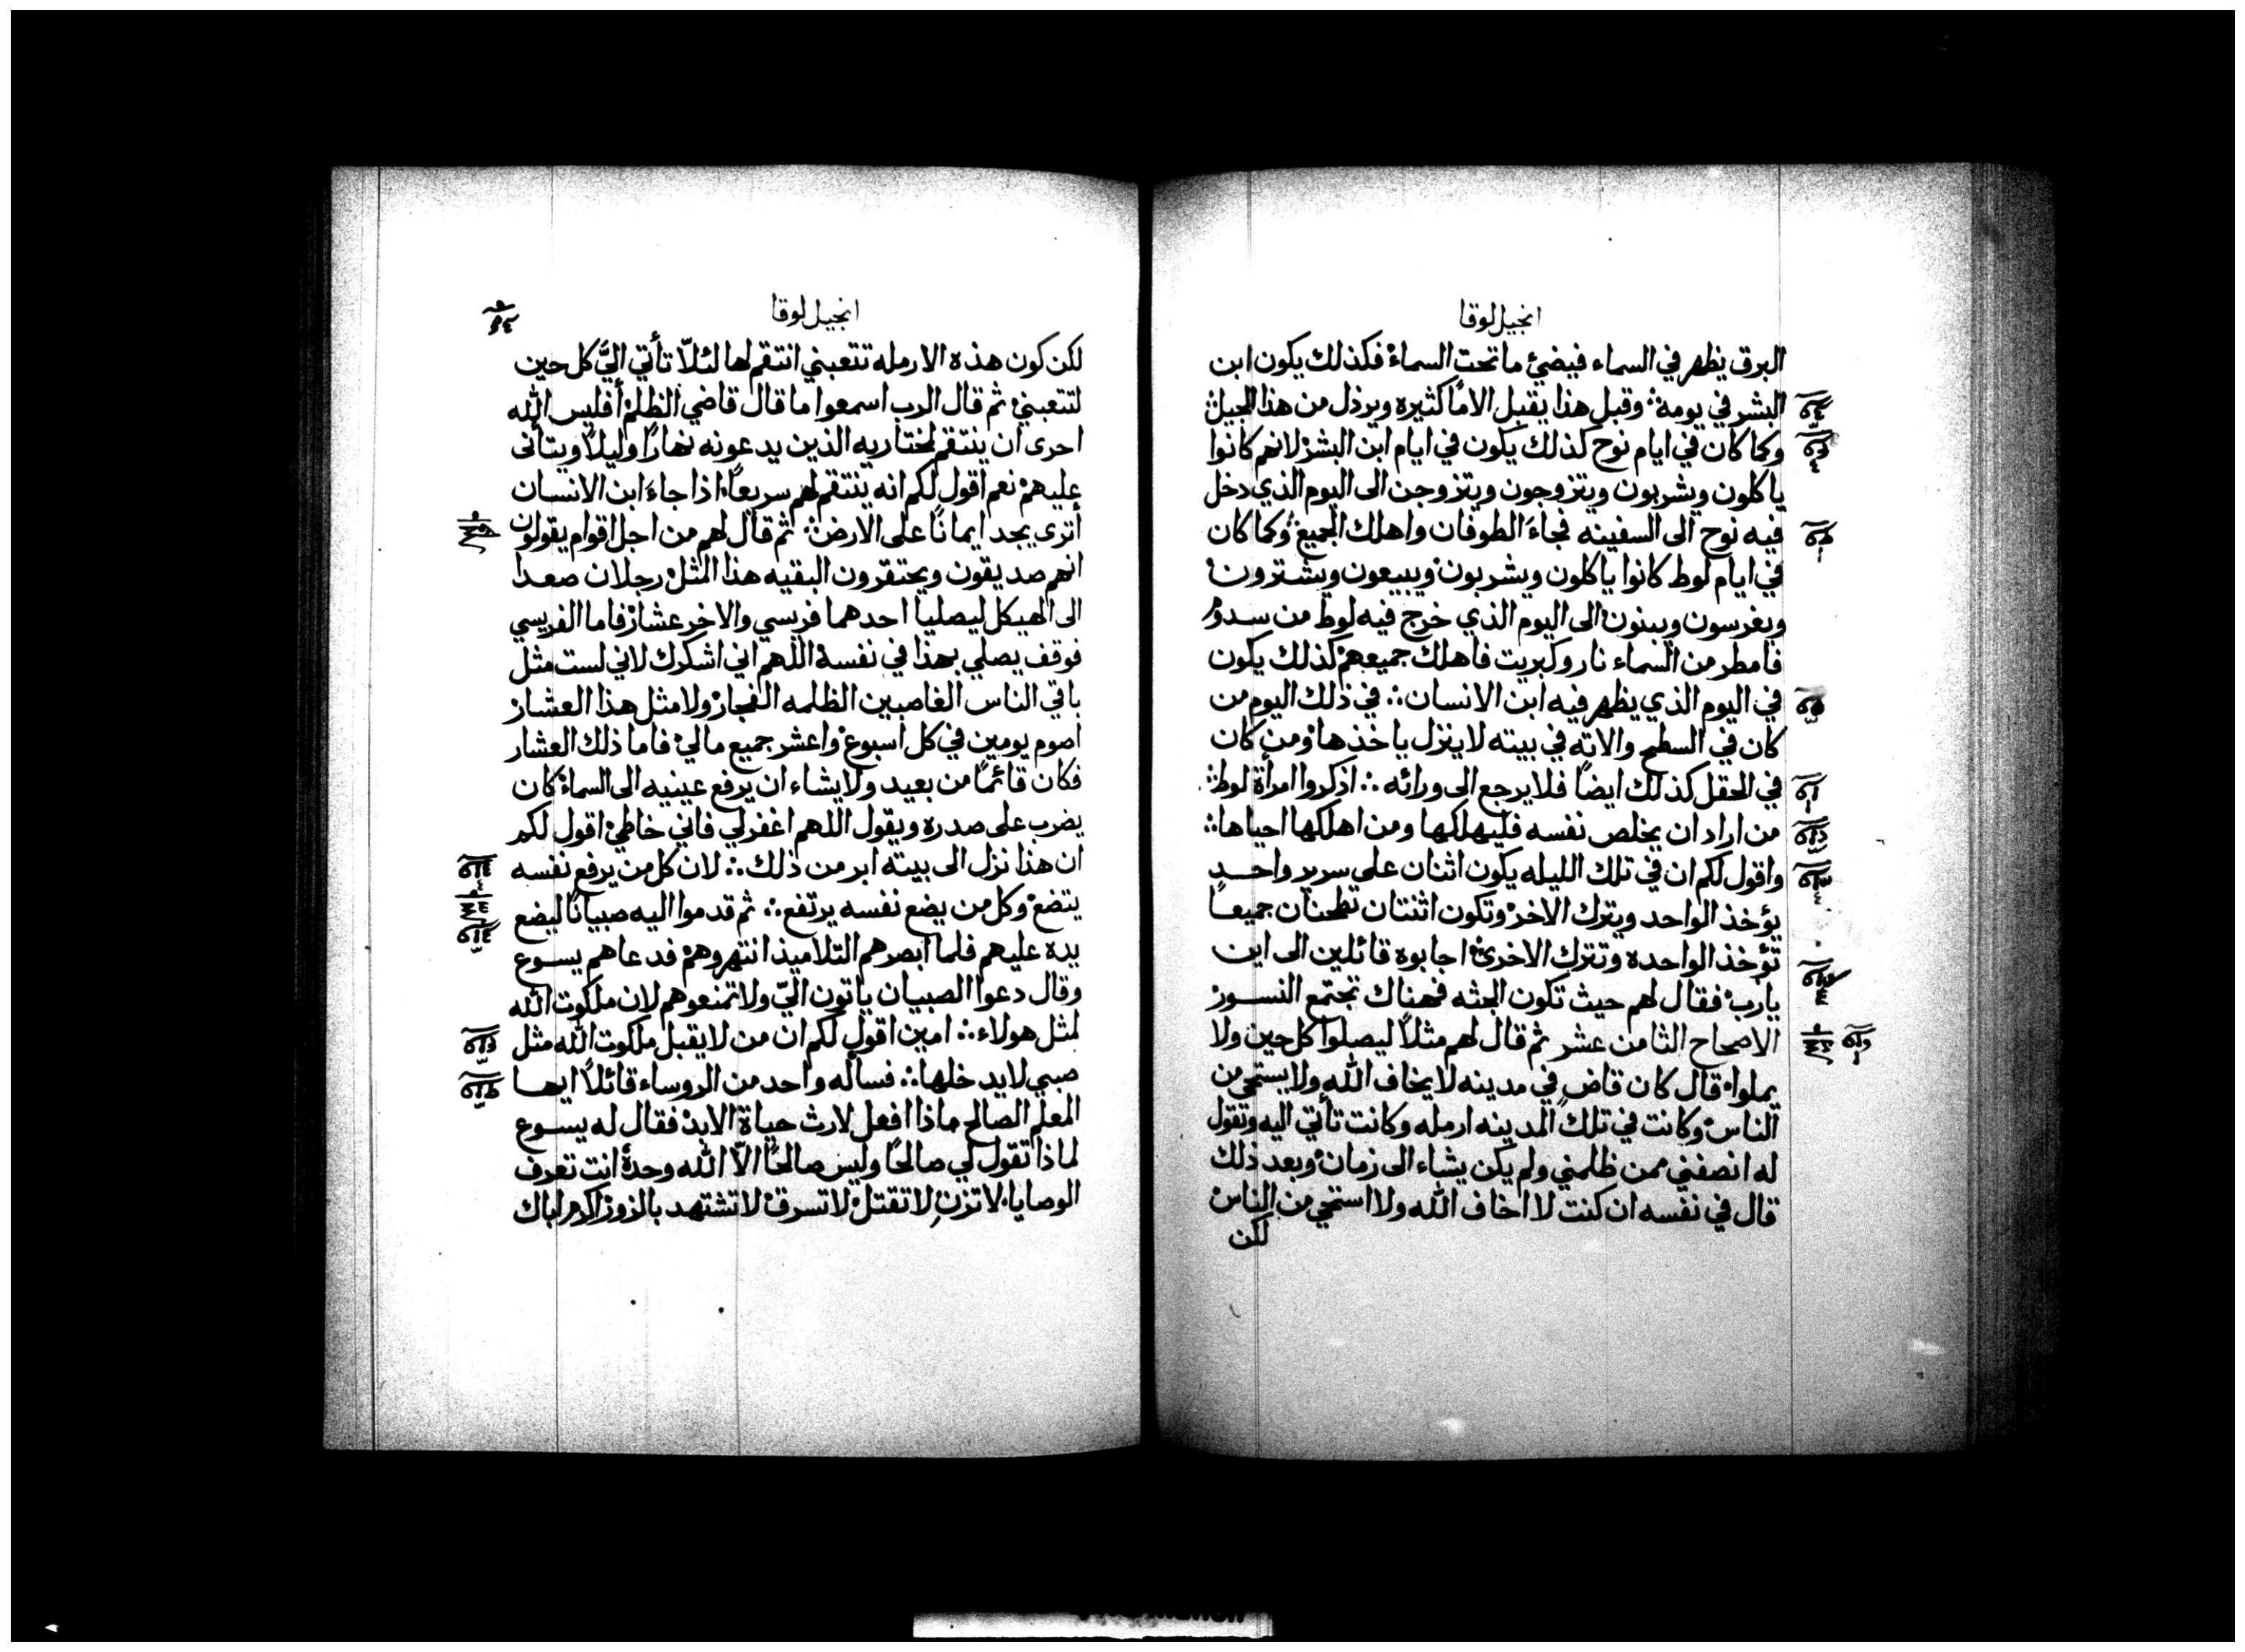 انجيل لوقا
البرق يظهر في السماء فيضئ ما تحت السماء فكذلك يكون ابن
البشر في يومه ∴ وقبل هذا يقبل الامًا كثيره ويرذل من هذا الجيل ∴
وكما كان في ايام نوح كذلك يكون في ايام ابن البشر لانهم كانوا
ياكلون ويشربون ويتزوجون ويتزوجن الى اليوم الذي دخل
فيه نوح الى السفينه فجاءَ الطوفان واهلك الجميع وكما كان
في ايام لوط كانوا ياكلون ويشربون ويبيعون ويشترون
ويغرسون ويبنون الى اليوم الذي خرج فيه لوط من سدوم
فامطر من السماء نار وكبريت فاهلك جميعهم كذلك يكون
في اليوم الذي يظهر فيه ابن الانسان ∴ في ذلك اليوم من
كان في السطح والاته في بيته لا ينزل ياخذها ومن كان
في الحقل كذلك ايضًا فلا يرجع الى ورائه ∴ اذكروا امرأة لوط ∴
من اراد ان يخلص نفسه فليهلكها ومن اهلكها احياها ∴
واقول لكم ان في تلك الليله يكون اثنان على سرير واحد
يؤخذ الواحد ويترك الاخر وتكون اثنتان تطحنان جميعًا
تؤخذ الواحده وتترك الاخرى اجابوه قائلين الى اين
يارب فقال لهم حيث تكون الجثه فهناك تجتمع النسور
الاصحاح الثامن عشر ثم قال لهم مثلاً ليصلوا كل حين ولا
يملوا قال كان قاضٍ في مدينه لا يخاف الله ولا يستحي من
الناس وكانت في تلك المدينه ارمله وكانت تأتي اليه وتقول
له انصفني ممن ظلمني ولم يكن يشاء الى زمان وبعد ذلك
قال في نفسه ان كنت لا اخاف الله ولا استحي من الناس
لكن
انجيل لوقا
لكن كون هذه الارمله تتعبني انتقم لها لئلّا تأتي اليَّ كل حين
لتتعبني ثم قال الرب اسمعوا ما قال قاضي الظلم أفليس الله
احرى ان ينتقم لمختاريه الذين يدعونه نهارًا وليلاً ويتأنى
عليهم نعم اقول لكم انه ينتقم لهم سريعًا اذا جاءَ ابن الانسان
أترى يجد ايمانًا على الارض ∴ ثم قال لهم من اجل اقوام يقولون
انهم صديقون ويحتقرون البقيه هذا المثل رجلان صعدا
الى الهيكل ليصليا احدهما فريسي والاخر عشار فاما الفريسي
فوقف يصلي بهذا في نفسه اللهم اني اشكرك لاني لست مثل
باقي الناس الغاصبين الظلمه الفجار ولا مثل هذا العشار
اصوم يومين في كل اسبوع واعشر جميع مالي فاما ذلك العشار
فكان قائمًا من بعيد ولا يشاء ان يرفع عينيه الى السماء كان
يضرب على صدره ويقول اللهم اغفر لي فاني خاطئ اقول لكم
ان هذا نزل الى بيته ابر من ذلك ∴ لان كل من يرفع نفسه
يتضع وكل من يضع نفسه يرتفع ∴ ثم قدموا اليه صبيانًا ليضع
يده عليهم فلما ابصرهم التلاميذ انتهروهم فدعاهم يسوع
وقال دعوا الصبيان ياتون اليّ ولا تمنعوهم لان ملكوت الله
لمثل هولاء ∴ امين اقول لكم ان من لا يقبل ملكوت الله مثل
صبي لا يدخلها ∴ فسأله واحد من الروساء قائلاً ايها
المعلم الصالح ماذا افعل لارث حياة الابد فقال له يسوع
لماذا تقول لي صالحًا وليس صالحًا الّا الله وحده انت تعرف
الوصايا لا تزنِ لا تقتل لا تسرق لا تشتهد بالزور اكرم اباك